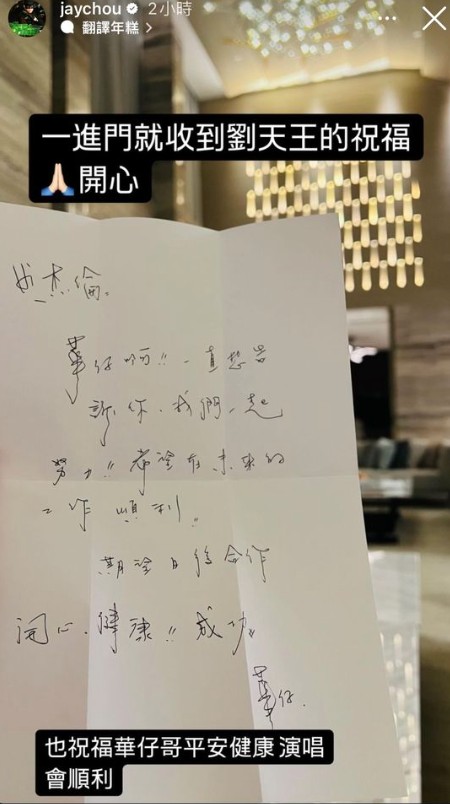 jaychou 2小時
翻譯年糕 >
一進門就收到劉天王的祝福
🙏🏻開心
杰倫。
華仔啊!! 一直想告
訴你、我們一起
努力!! 希望在未來的
工作順利。
期望日後合作
開心、健康!! 成功。
華仔.
也祝福華仔哥平安健康 演唱
會順利